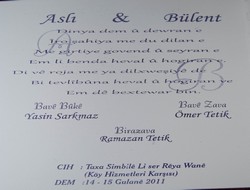 Aslı & Bülent
Dinya dem û dewran e
Îro şahiya me du dilan e
Me girtiye govend û seyran e
Em li benda heval û hogiran e
Di vê roja me ya dilxweşiyê de
Bi tevlîbûna heval û hogiran e
Em dê bextewar bin.
Bavê Bûkê Bavê Zava
Yasin Sarkmaz Ömer Tetik
Birazava
Ramazan Tetik
CIH : Taxa Simbilê Li ser Rêya Wanê
(Koy Hizmetleri Karşısı)
DEM : 14 - 15 Gulanê 2011